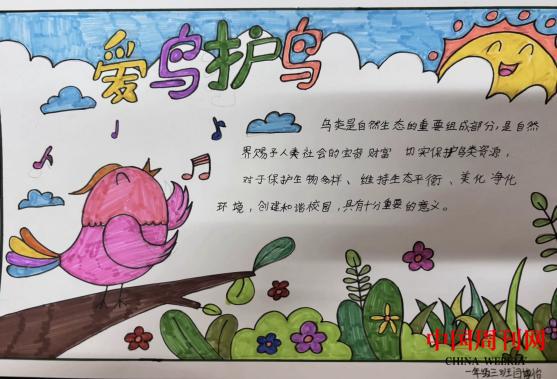 爱鸟护鸟
鸟类是自然生态的重要组成部分,是自然
界赐予人类社会的宝贵财富 切实保护鸟类资源,
对于保护生物多样、维持生态平衡、美化净化
环境,创建和谐校园,具有十分重要的意义。
中国周刊网
CHINA WEEKLY
一年级三班